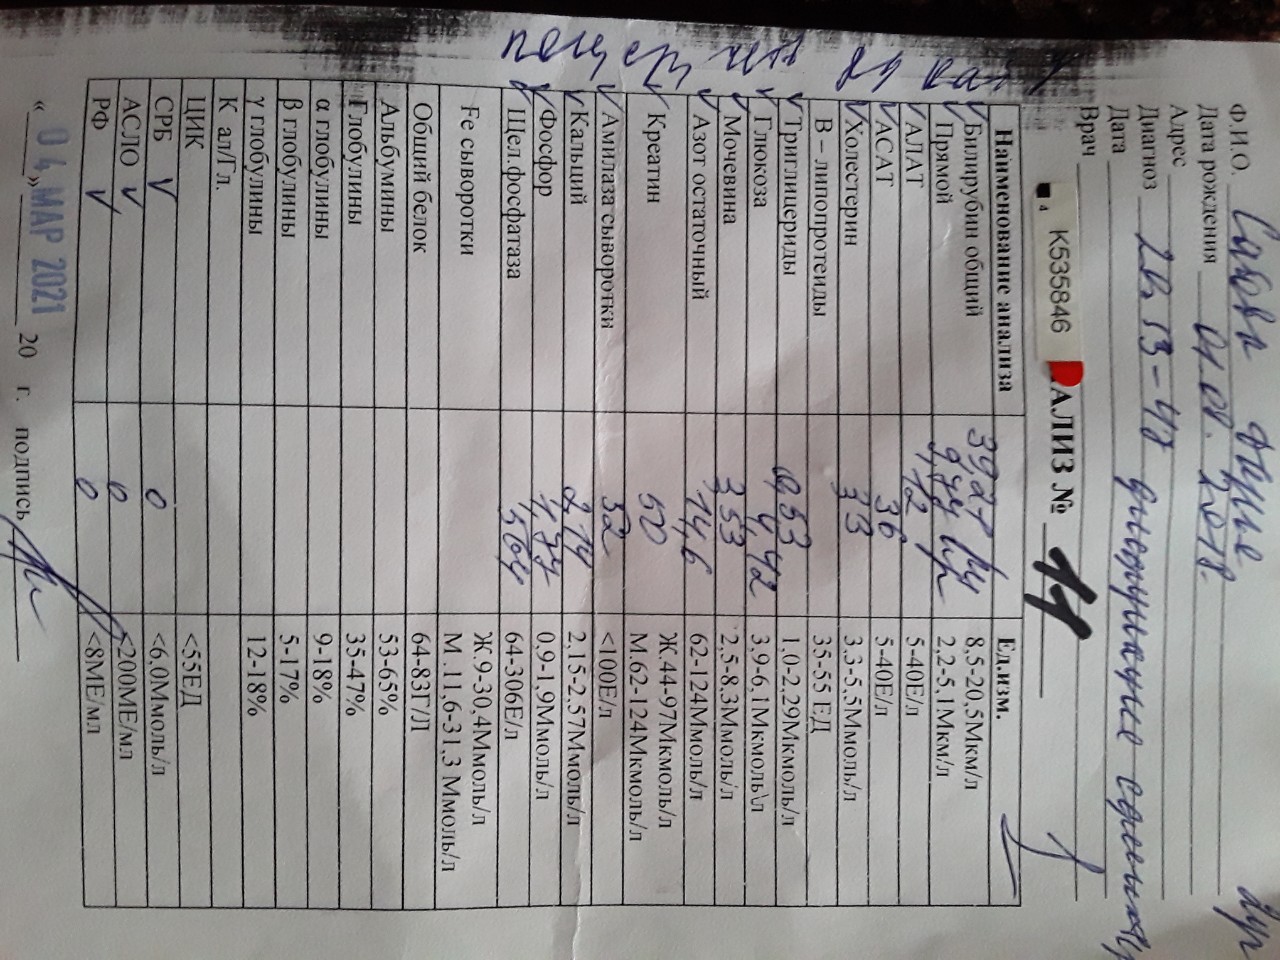 Ф.И.О.
Дата рождения 01.08.2018.
Адрес
Диагноз
Дата
Врач
K535846
4
АЛИЗ № 11
Наименование анализа Ед.изм.
Билирубин общий 39,21 8,5-20,5Мкм/л
Прямой 9,74 2,2-5,1Мкм/л
АЛАТ 12 5-40Е/л
АСАТ 36 5-40Е/л
Холестерин 33 3,3-5,5Ммоль/л
В – липопротеиды 35-55 ЕД
Триглицериды 0,53 1,0-2,29Мкмоль/л
Глюкоза 4,42 3,9-6,1Мкмоль\л
Мочевина 3,53 2,5-8,3Ммоль/л
Азот остаточный 14,6 62-124Ммоль/л
Креатин 50 Ж.44-97Мкмоль/л
М.62-124Мкмоль/л
Амилаза сыворотки 52 <100Е/л
Кальций 2,14 2,15-2,57Ммоль/л
Фосфор 1,77 0,9-1,9Ммоль/л
Щел.фосфатаза 564 64-306Е/л
Fe сыворотки Ж.9-30,4Ммоль/л
М.11,6-31,3 Ммоль/л
Общий белок 64-83Г/Л
Альбумины 53-65%
Глобулины 35-47%
α глобулины 9-18%
β глобулины 5-17%
γ глобулины 12-18%
К ал/Гл.
ЦИК <55ЕД
СРБ V 0 <6,0Ммоль/л
АСЛО V 0 <200МЕ/мл
РФ V 0 <8МЕ/мл
« 04 » МАР 2021 20 г. подпись